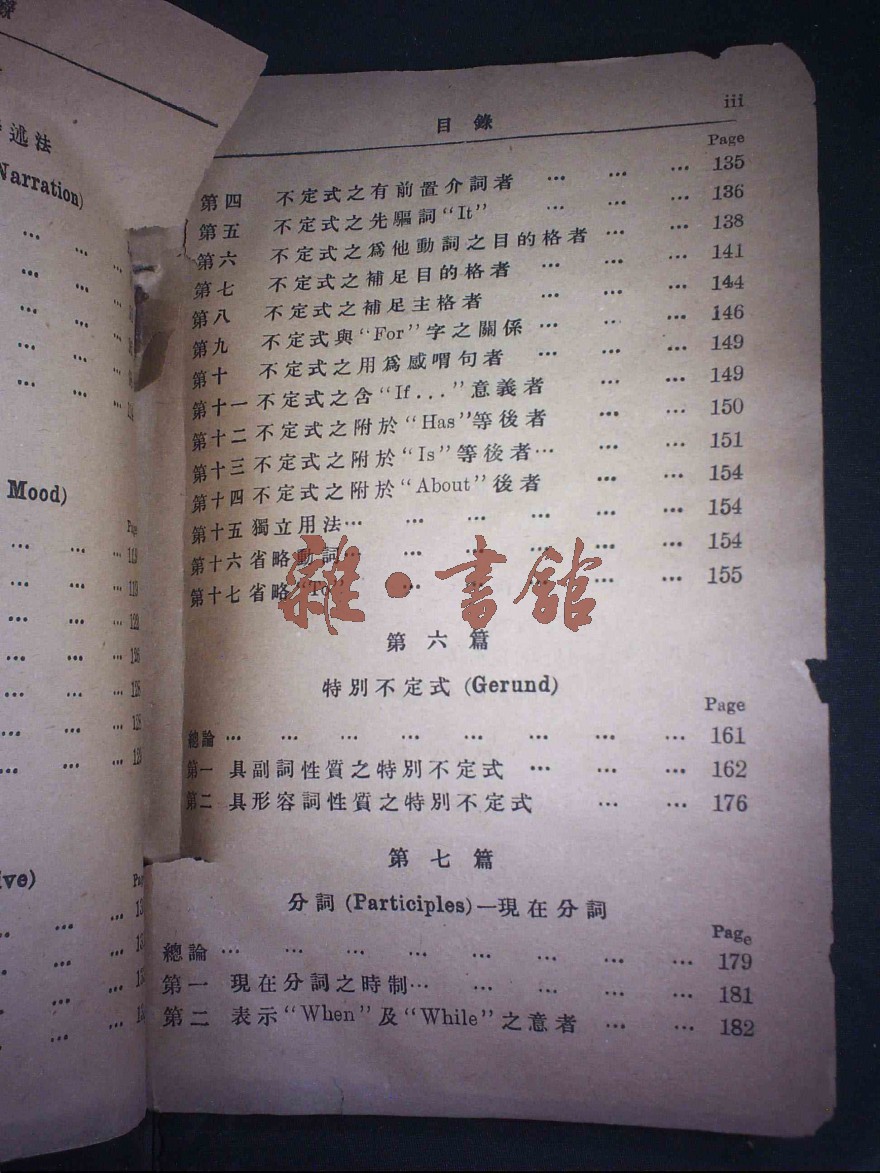 述法
Narration)
Mood)
Page
119
119
iii
目錄
Page
第四 不定式之有前置介詞者 … … … 135
第五 不定式之先驅詞“It” … … … 136
第六 不定式之爲他動詞之目的格者 … … 138
第七 不定式之補足目的格者 … … … 141
第八 不定式之補足主格者 … … … 144
第九 不定式與“For”字之關係 … … … 146
第十 不定式之用爲感喟句者 … … … 149
第十一 不定式之含“If...”意義者 … … 149
第十二 不定式之附於“Has”等後者 … … 150
第十三 不定式之附於“Is”等後者… … … 151
第十四 不定式之附於“About”後者 … … 154
第十五 獨立用法… … … … … … 154
第十六 省略動詞… … … … … … 154
第十七 省略“To” … … … … … 155
雜·書館
第六篇
特別不定式 (Gerund)
Page
總論 … … … … … … … … 161
第一 具副詞性質之特別不定式 … … … 162
第二 具形容詞性質之特別不定式 … … 176
第七篇
分詞 (Participles)—現在分詞
Page
總論 … … … … … … … … 179
第一 現在分詞之時制… … … … … 181
第二 表示“When”及“While”之意者 … … 182